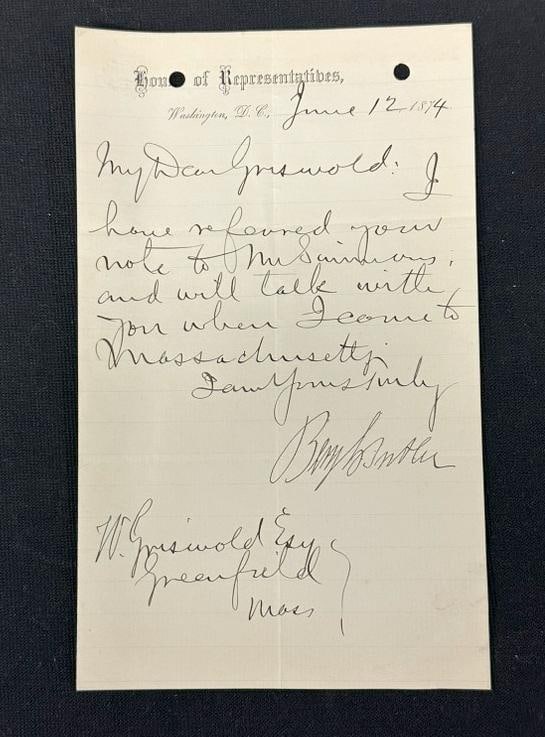 House of Representatives,
Washington, D. C., June 12 1874
My Dear Griswold: I
have referred your
note to Mr Simmons,
and will talk with
you when I come to
Massachusetts,
I am Yours truly
Benj F Butler
W. Griswold Esq
Greenfield
Mass